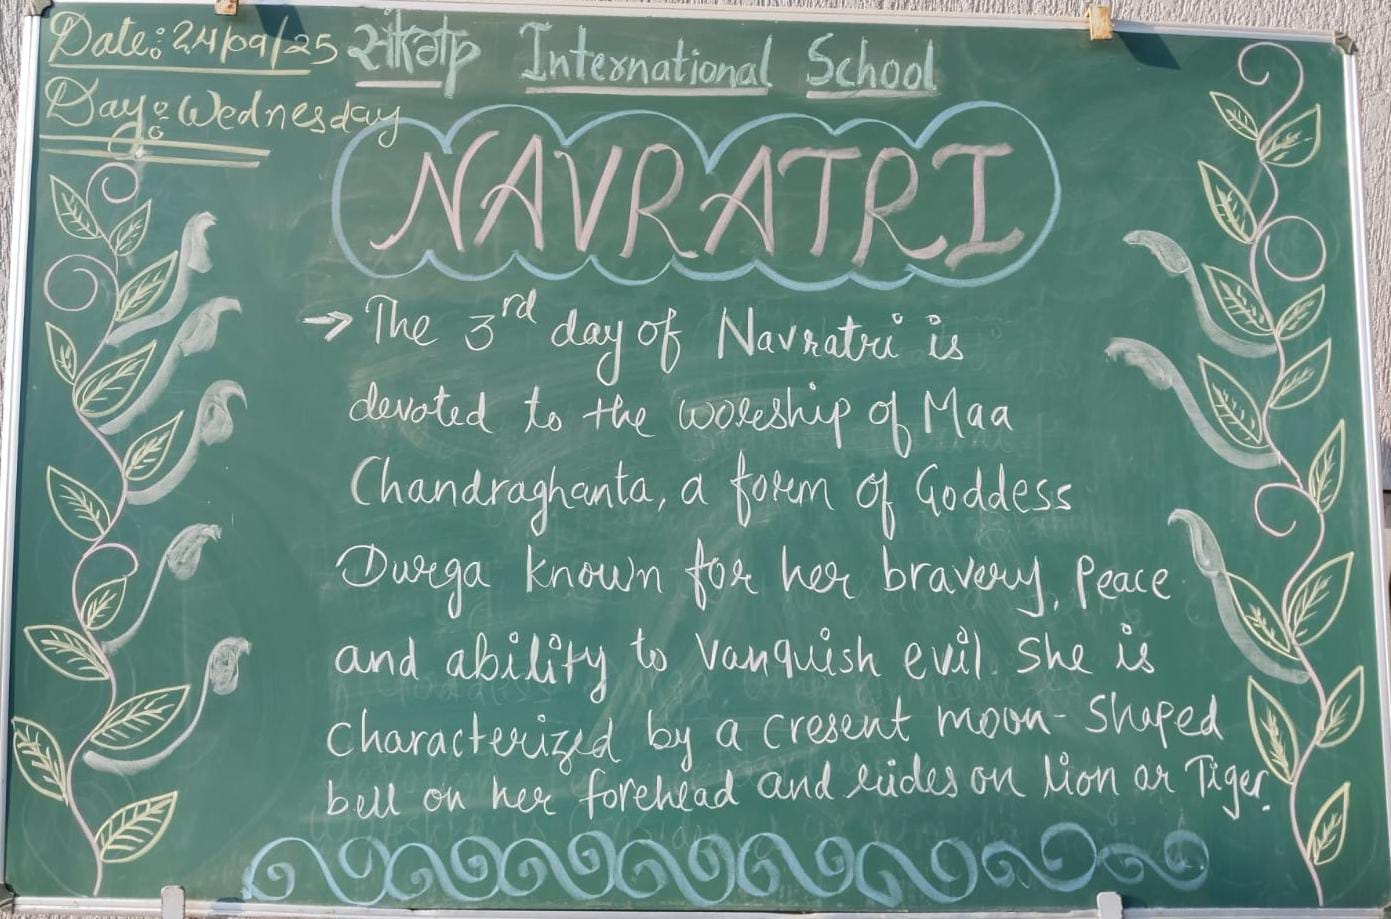 Date: 24/09/25 संकल्प International School
Day: Wednesday
NAVRATRI
→ The 3rd day of Navratri is
devoted to the worship of Maa
Chandraghanta, a form of Goddess
Durga known for her bravery, Peace
and ability to vanquish evil. She is
characterized by a cresent moon-shaped
bell on her forehead and rides on lion or Tiger.